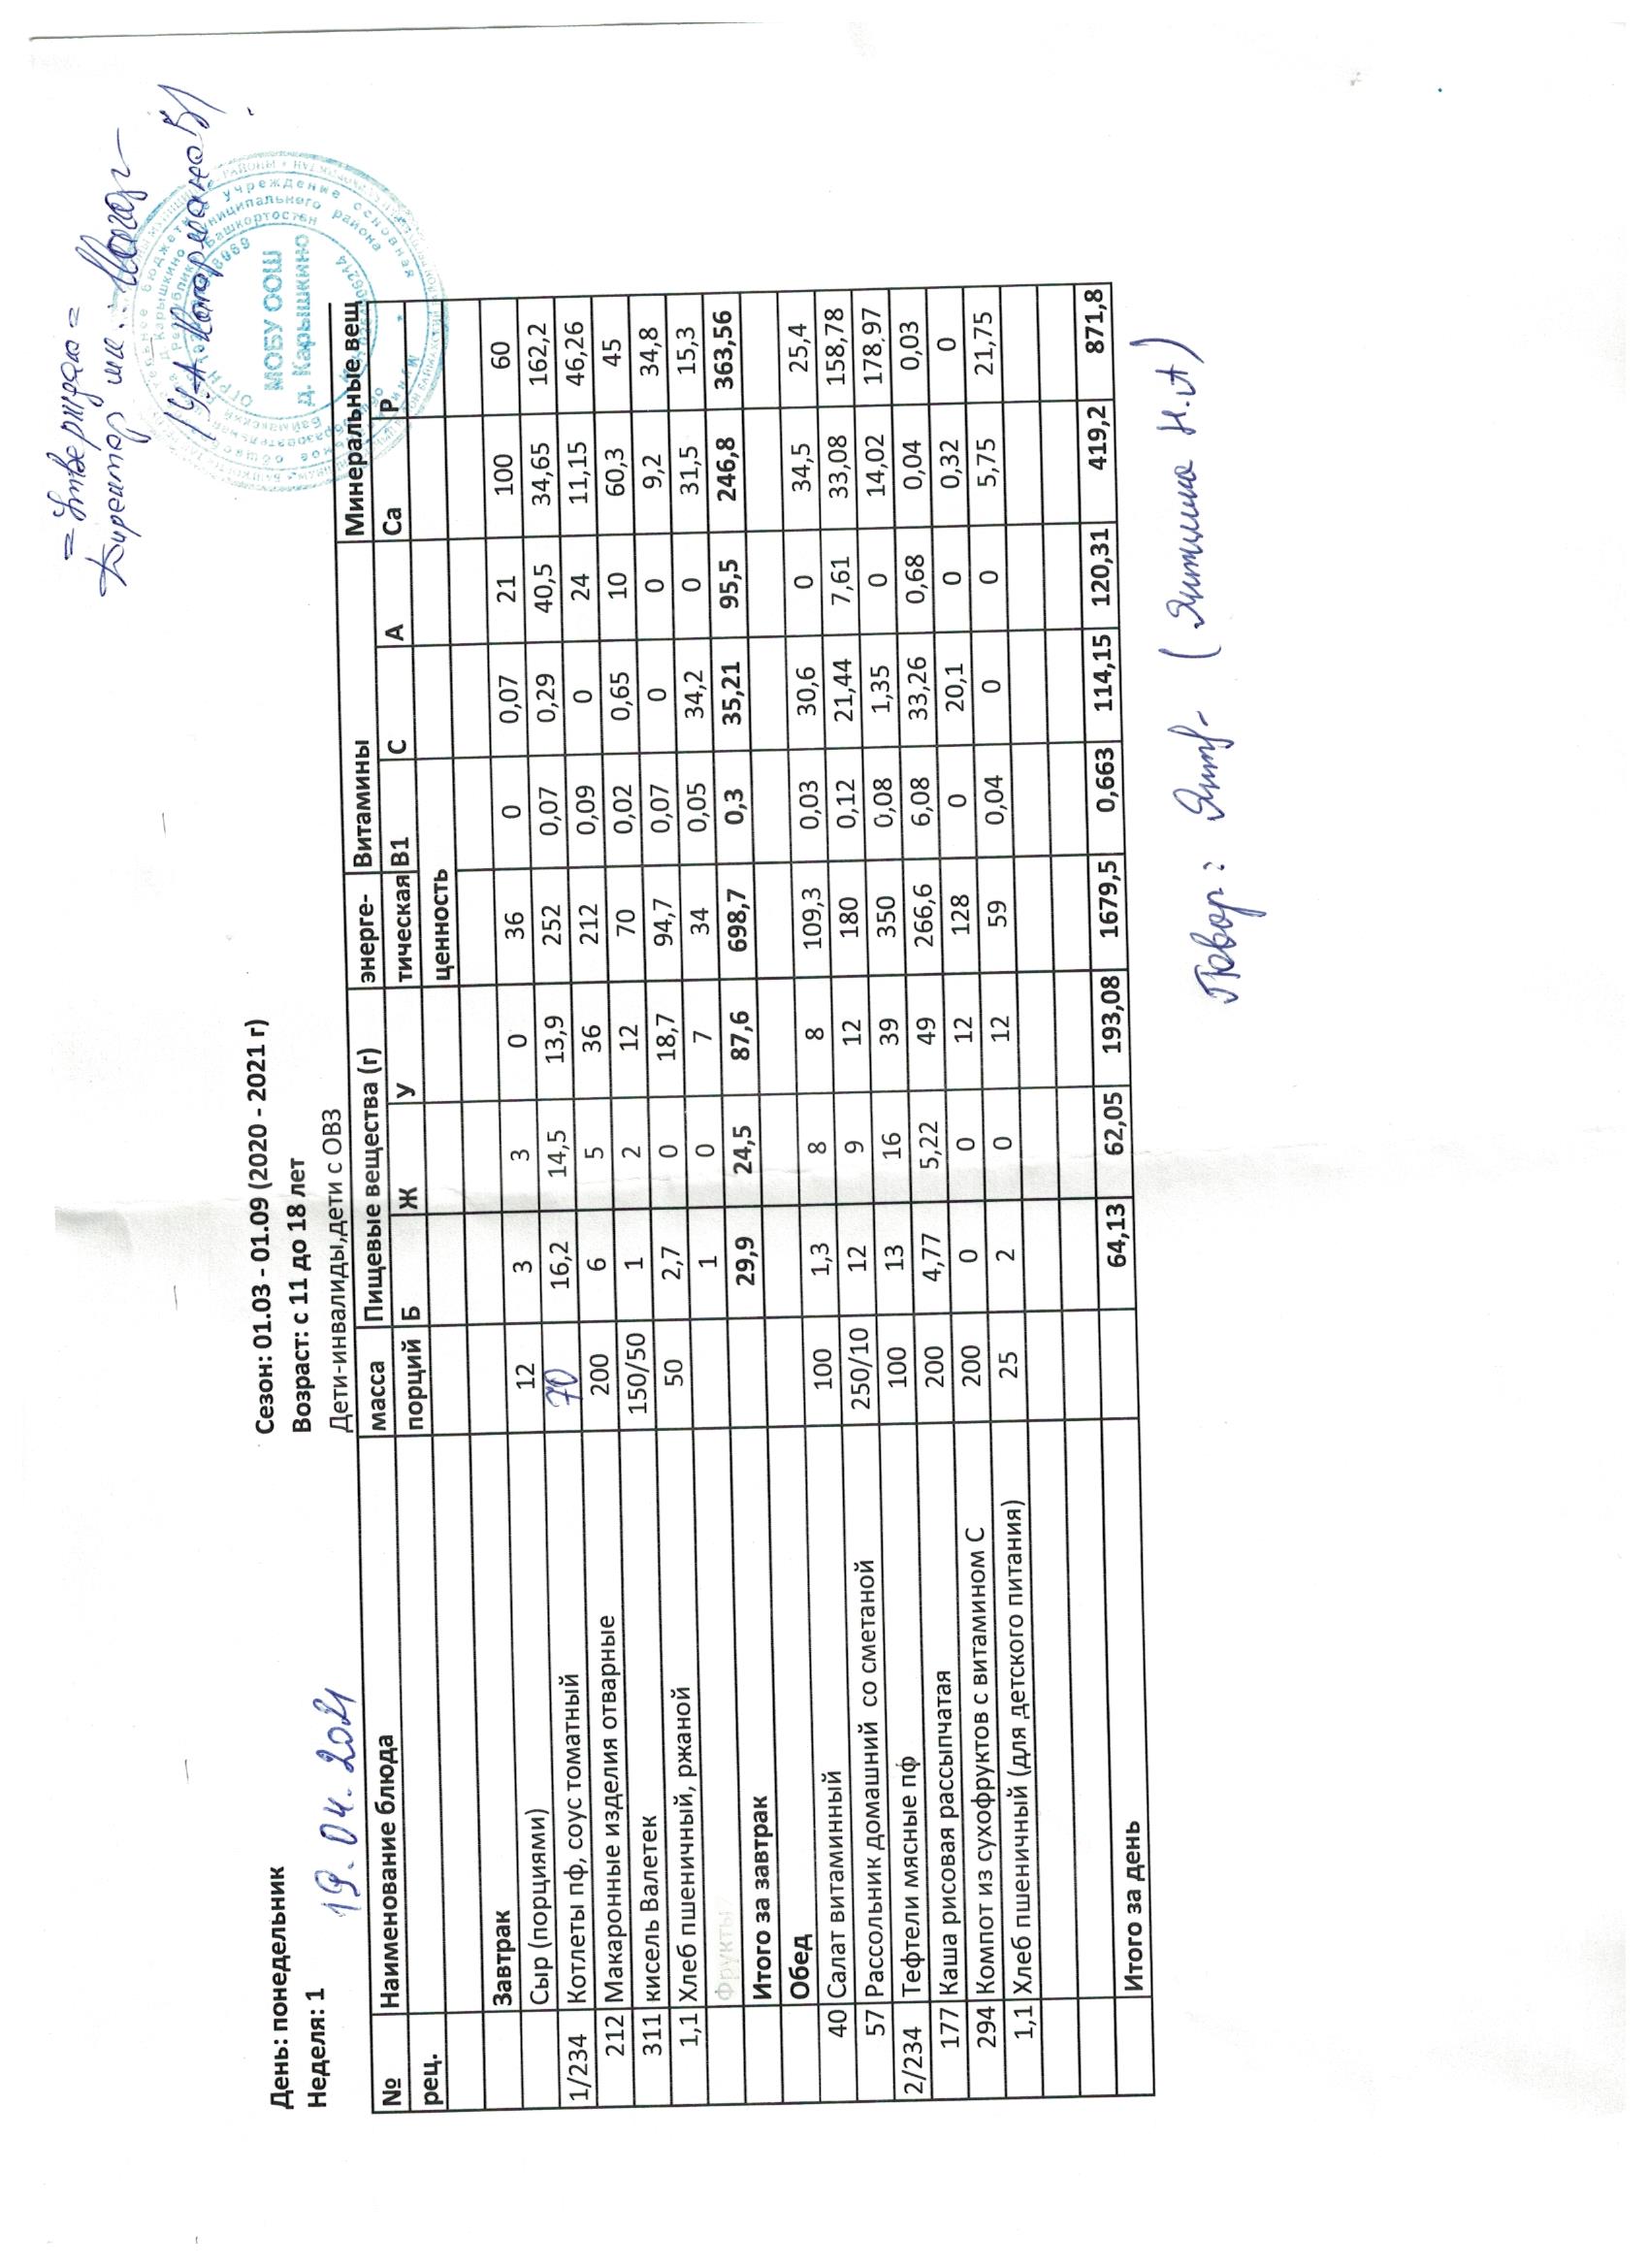 =Утверждаю=
Директор шк.:
МОБУ ООШ
д. Карышкино
Сезон: 01.03 - 01.09 (2020 - 2021 г)
День: понедельник
Возраст: с 11 до 18 лет
Неделя: 1
19.04.2021
Дети-инвалиды,дети с ОВЗ
№ Наименование блюда масса Пищевые вещества (г) энерге- Витамины Минеральные вещ
рец. порций Б Ж У тическая В1 С А Са Р
ценность
Завтрак
Сыр (порциями) 12 3 3 0 36 0 0,07 21 100 60
1/234 Котлеты пф, соус томатный 70 16,2 14,5 13,9 252 0,07 0,29 40,5 34,65 162,2
212 Макаронные изделия отварные 200 6 5 36 212 0,09 0 24 11,15 46,26
311 кисель Валетек 150/50 1 2 12 70 0,02 0,65 10 60,3 45
1,1 Хлеб пшеничный, ржаной 50 2,7 0 18,7 94,7 0,07 0 0 9,2 34,8
Фрукты 1 0 7 34 0,05 34,2 0 31,5 15,3
Итого за завтрак 29,9 24,5 87,6 698,7 0,3 35,21 95,5 246,8 363,56
Обед
40 Салат витаминный 100 1,3 8 8 109,3 0,03 30,6 0 34,5 25,4
57 Рассольник домашний со сметаной 250/10 12 9 12 180 0,12 21,44 7,61 33,08 158,78
2/234 Тефтели мясные пф 100 13 16 39 350 0,08 1,35 0 14,02 178,97
177 Каша рисовая рассыпчатая 200 4,77 5,22 49 266,6 6,08 33,26 0,68 0,04 0,03
294 Компот из сухофруктов с витамином С 200 0 0 12 128 0 20,1 0 0,32 0
1,1 Хлеб пшеничный (для детского питания) 25 2 0 12 59 0,04 0 0 5,75 21,75
Итого за день 64,13 62,05 193,08 1679,5 0,663 114,15 120,31 419,2 871,8
Повар: